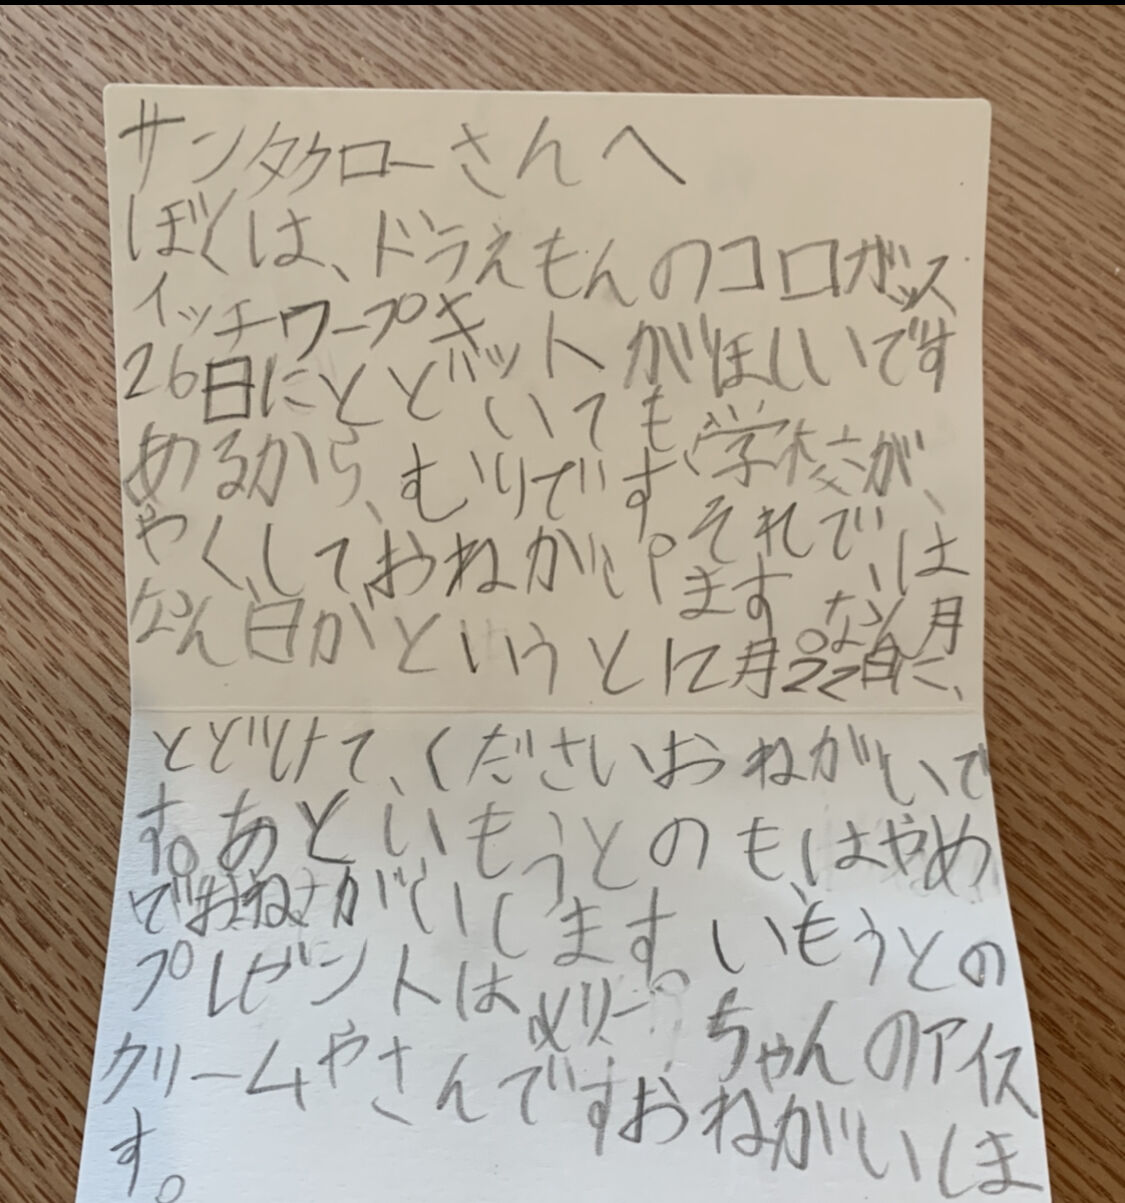 サンタクローさんへ
ぼくは、ドラえもんのコロガッス
イッチワープキットがほしいです
26日にとどいても、学校が、
あるから、むりです。それで、は
やくしておねがいします。なん月
なん日かというと12月22日に、
とどけて、くださいおねがいで
す。あといもうとのもはやめ
でおねがいします。いもうとの
プレゼントはメリーちゃんのアイス
クリームやさんですおねがいしま
す。